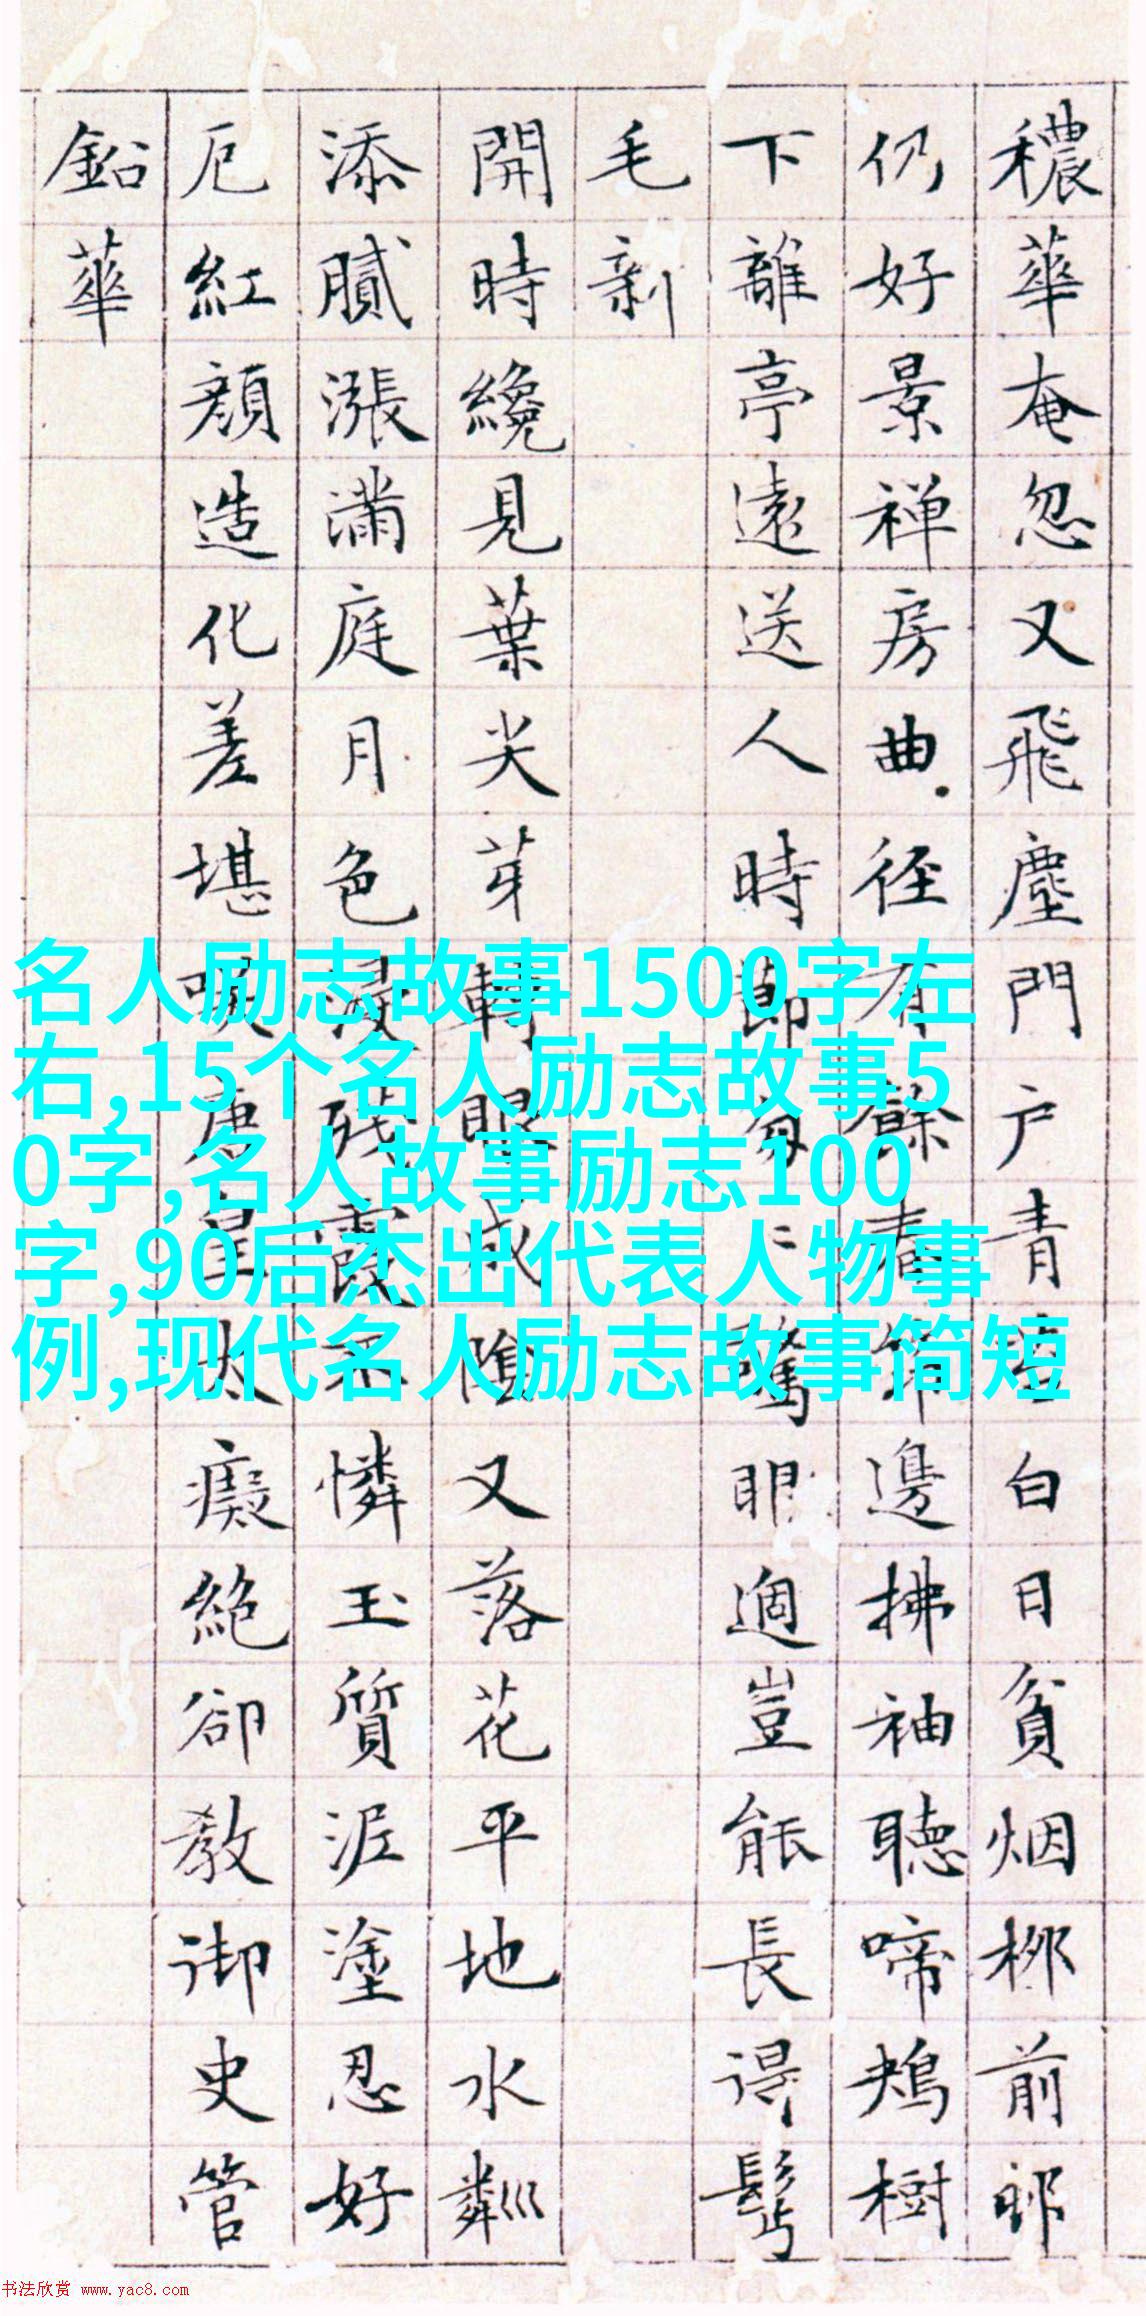 穠華奄忽又飛塵門户青白日貧烟柳前
仍好景禅房曲径有餘春筇邊拂袖聽啼鳺樹
下離亭遠送人時節匆〻驚眼過豈能長得鬢
毛新
開時纔見葉尖芽轉眼成陰又落花平地水粼
添膩漲滿庭月色浸残霞不憐玉質泥塗忍好
卮紅顏造化差堪唐皇太癡絕卻教御史管
鉛華
名人励志故事1500字左
右,15个名人励志故事5
0字,名人故事励志100
字,90后杰出代表人物事
例,现代名人励志故事简短
书法欣赏 www.yac8.com